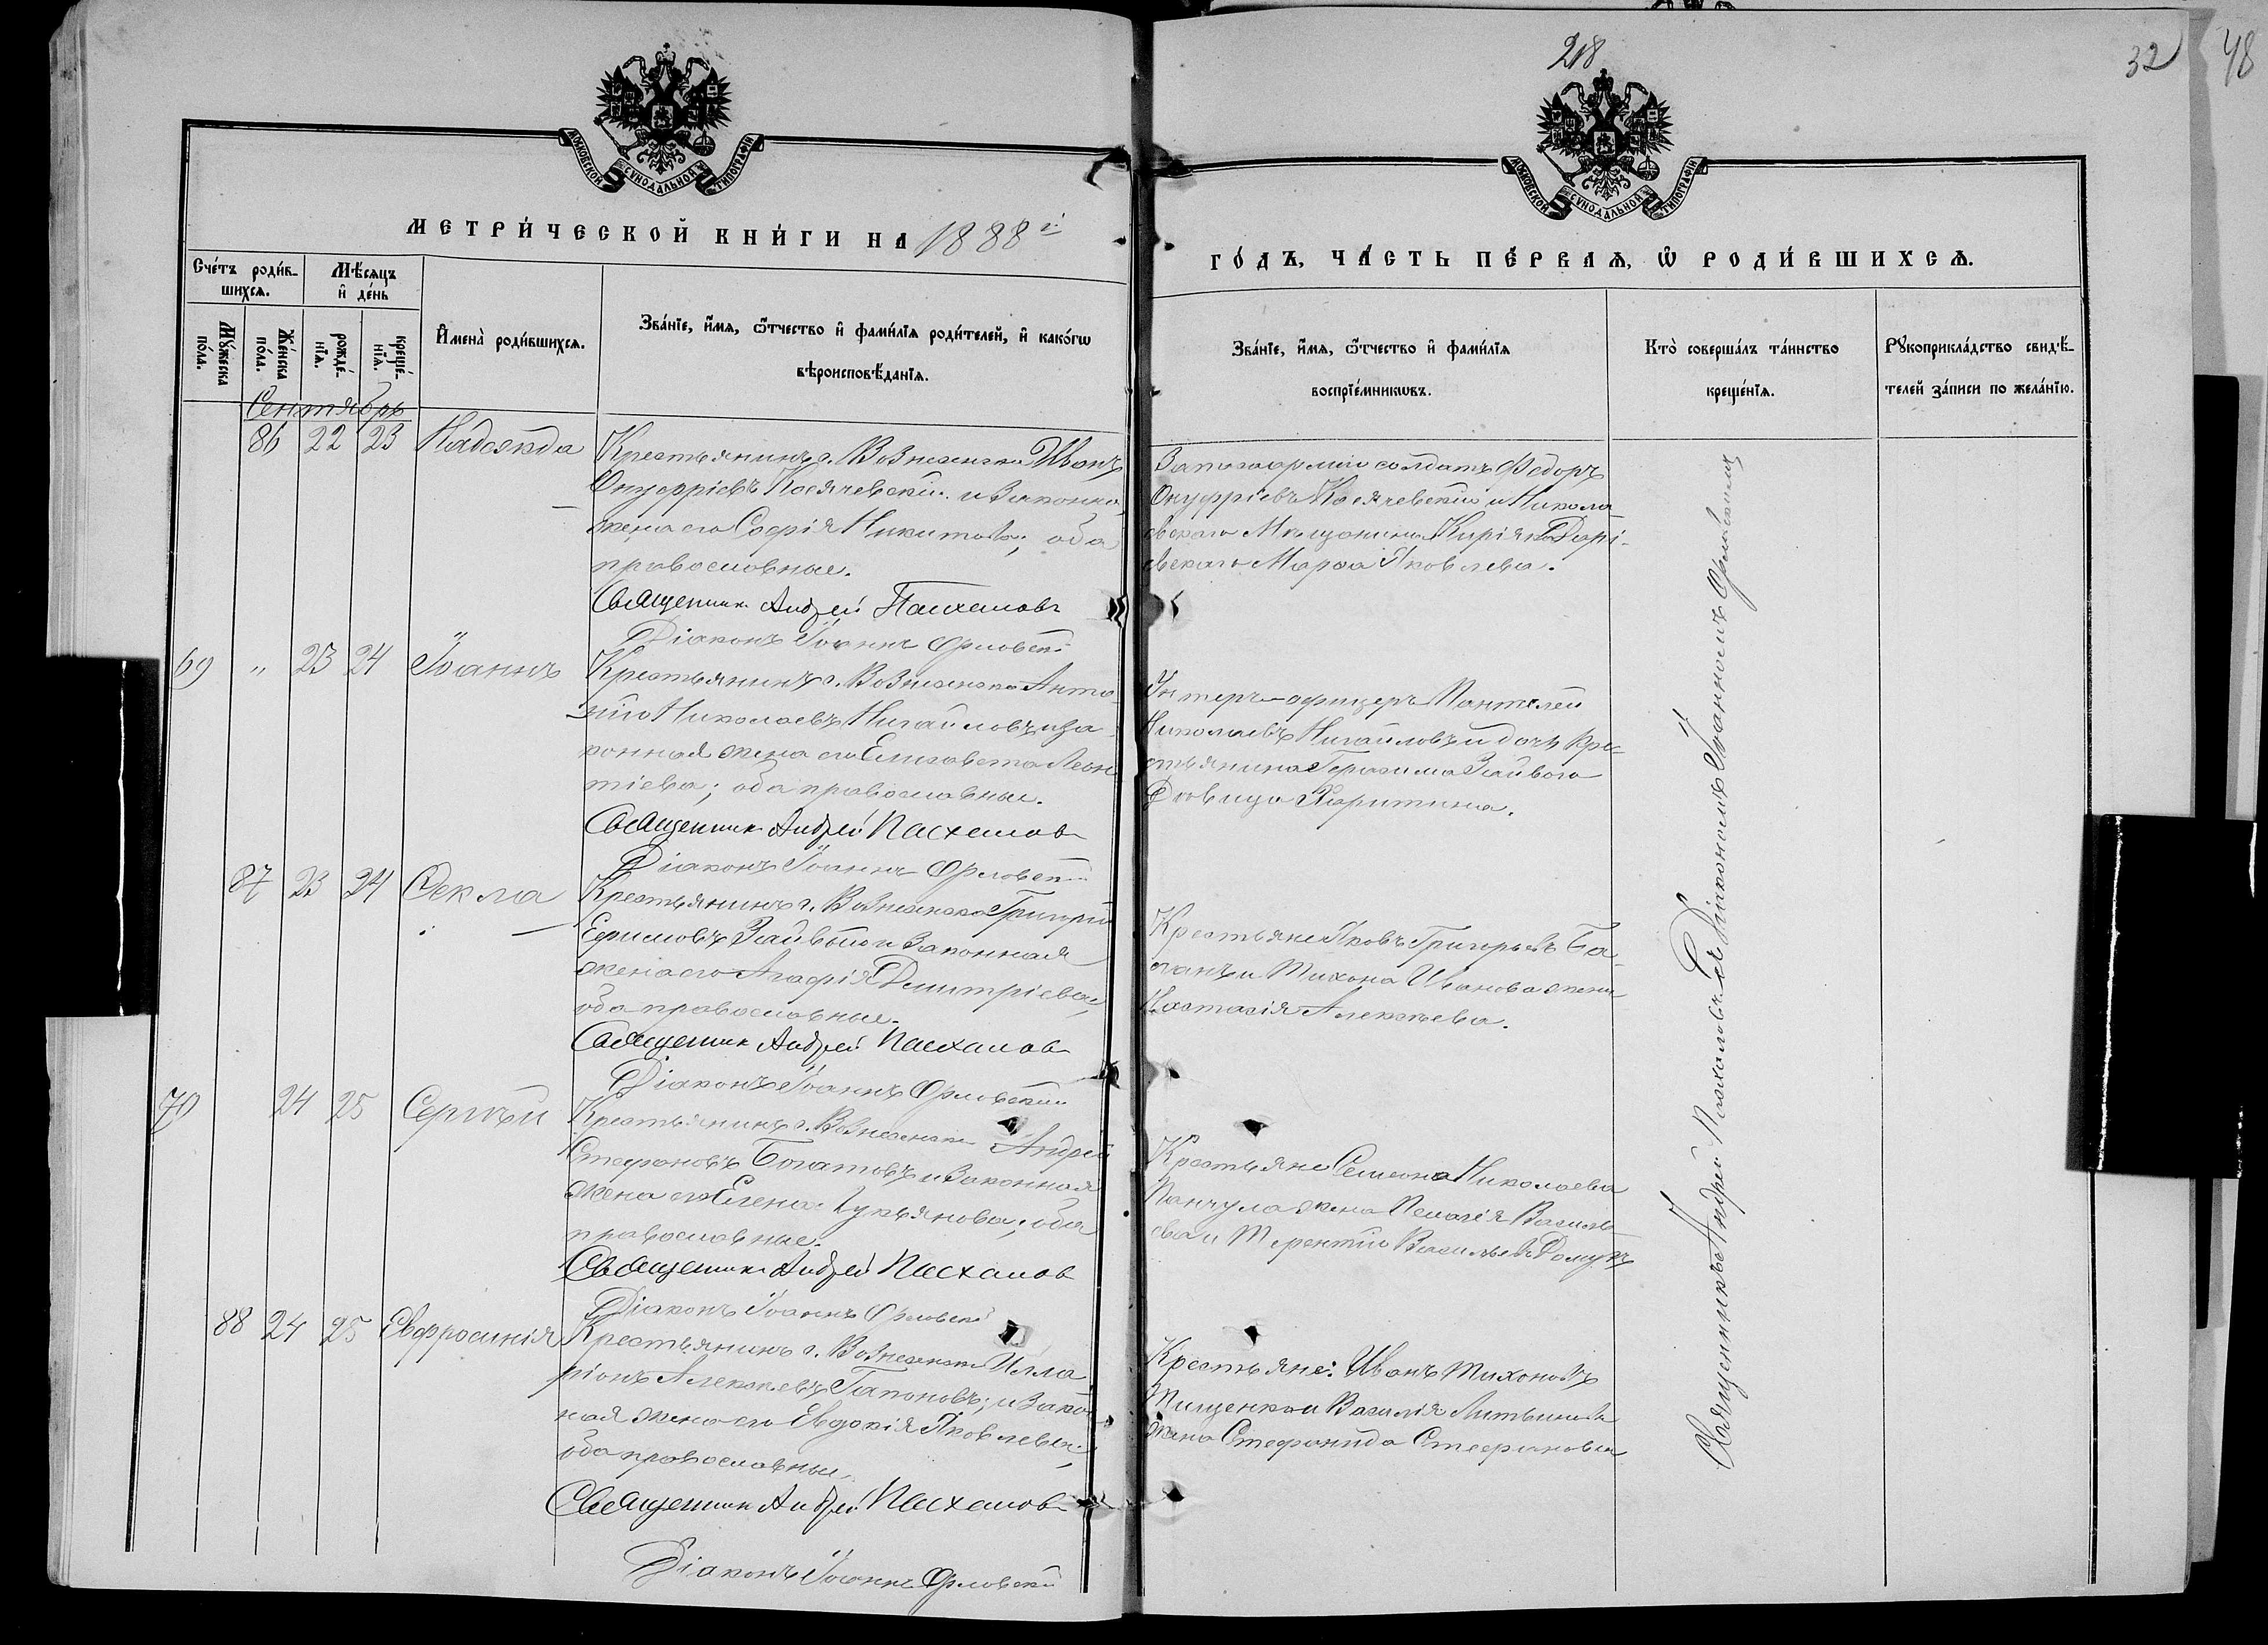 218
32
48
МОСКОВСКОЙ СѴНОДАЛЬНОЙ ТИПОГРАФІИ
МОСКОВСКОЙ СѴНОДАЛЬНОЙ ТИПОГРАФІИ
МЕТРИ́ЧЕСКОЙ КНИ́ГИ НА 1888 й
ГО́ДЪ, ЧА́СТЬ ПЕ́РВАѦ, Ѡ҆ РОДИ́ВШИХСѦ.
Сче́тъ роди́в-
шихсѧ.
Мѣ́сѧцъ
и҆ де́нь
Мꙋ́жеска
по́ла.
Же́нска
по́ла.
рожде́-
нїѧ.
креще́-
нїѧ.
И҆мена̀ роди́вшихсѧ.
Зва́нїе, и҆́мѧ, ѻ҆́тчество и҆ фами́лїѧ роди́телей, и҆ како́гѡ
вѣроисповѣ́данїѧ.
Зва́нїе, и҆́мѧ, ѻ҆́тчество и҆ фами́лїѧ
воспрїе́мникѡвъ.
Кто̀ соверша́лъ та́инство
креще́нїѧ.
Рꙋкоприкла́дство свидѣ́-
телей за́писи по жела́нїю.
Сентябрь
86 22 23 Надежда
Крестьянинъ г. Вознесенска Иванъ
Онуфріевъ Косячевскій и законная
жена его Софія Никитова; оба
православные.
Священник Андрей Пасхалов
Діаконъ Іоаннъ Орловскій
Запасной арміи солдатъ Федоръ
Онуфріевъ Косячевскій и Никола-
евскаго Мещанина Киріяка
Марфа Яковлева.
69 " 23 24 Іоаннъ
Крестьянинъ г. Вознесенска Анто-
ній Николаевъ Нигайловъ и за-
конная жена его Елисавета Леон-
тіева; оба православные.
Священник Андрей Пасхалов
Діаконъ Іоаннъ Орловскій
Унтеръ-офицеръ Пантелей
Николаевъ Нигайловъ и дочь кре-
стьянина Герасима Зайваго
Дѣвица Харитина.
87 23 24 Ѳекла
Крестьянинъ г. Вознесенска Григорій
Ефимовъ Зайвый и законная
жена его Агафія Димитріева;
оба православные.
Священник Андрей Пасхалов
Діаконъ Іоаннъ Орловскій
Крестьяне Яковъ Григорьевъ Ба-
и Тихона Иванова жена
Настасія Алексѣева.
70 24 25 Сергѣй
Крестьянинъ г. Вознесенска Андрей
Стефановъ Богатовъ и законная
жена его Елена Лукьянова; оба
православные.
Священник Андрей Пасхалов
Діаконъ Іоаннъ Орловскій
Крестьяне Семеона Николаева
Панчула жена Пелагія Василь-
ева и Терентій Васильевъ
88 24 25 Евфросинія
Крестьянинъ г. Вознесенска Илла-
ріонъ Алексѣевъ Гапоновъ; и закон-
ная жена его Евдокія Яковлева;
оба православные.
Священник Андрей Пасхалов
Діаконъ Іоаннъ Орловскій
Крестьяне: Иванъ Тихоновъ
Тищенко и Василія Литвинова
жена Стефанида Стефановна
Священникъ Андрей Пасхаловъ съ Діакономъ Іоанномъ Орловскимъ